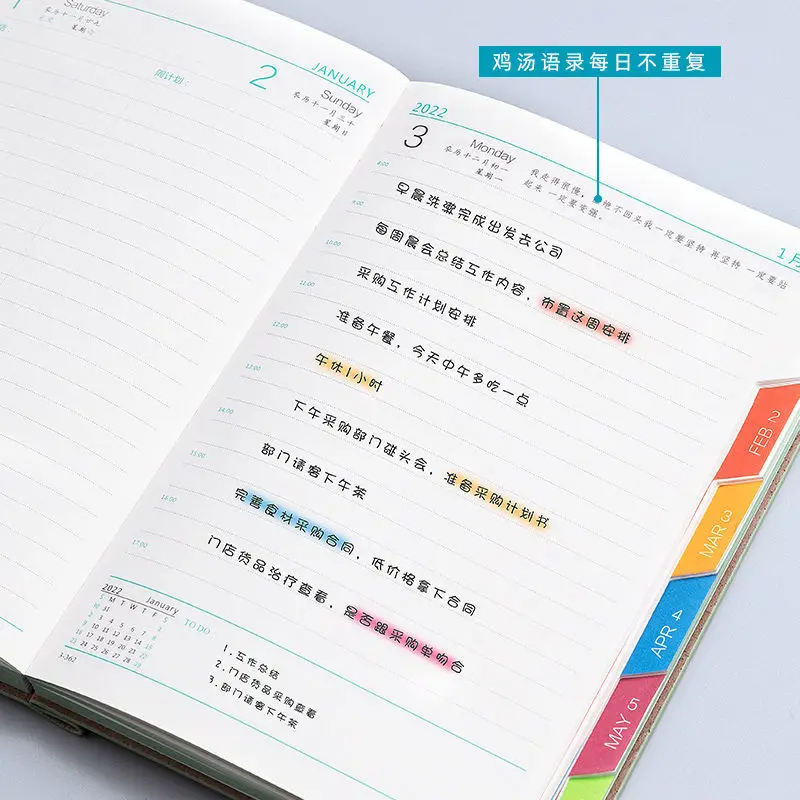 鸡汤语录每日不重复
1
Saturday
农历十一月廿九
星期六
周计划：
2
JANUARY
Sunday
农历十一月三十
星期日
2022
3
Monday
农历十二月初一
星期一
我走得很慢，绝不回头我一定要坚持 再坚持 一定要站
起来 一定要变强。
1月
8:00
早晨洗漱完成出发去公司
9:00
每周晨会总结工作内容，布置这周安排
10:00
采购工作计划安排
11:00
准备午餐，今天中午多吃一点
12:00
午休1小时
13:00
下午采购部门碰头会，准备采购计划书
14:00
部门请客下午茶
15:00
完善食材采购合同，低价格拿下合同
16:00
门店货品治疗查看，是否跟采购单吻合
17:00
2022 January
S M T W T F S
30 31 1
2 3 4 5 6 7 8
9 10 11 12 13 14 15
16 17 18 19 20 21 22
23 24 25 26 27 28 29
3-362
TO DO
1.工作总结
2.门店货品采购查看
3.部门请客下午茶
FEB 2
MAR 3
APR 4
MAY 5